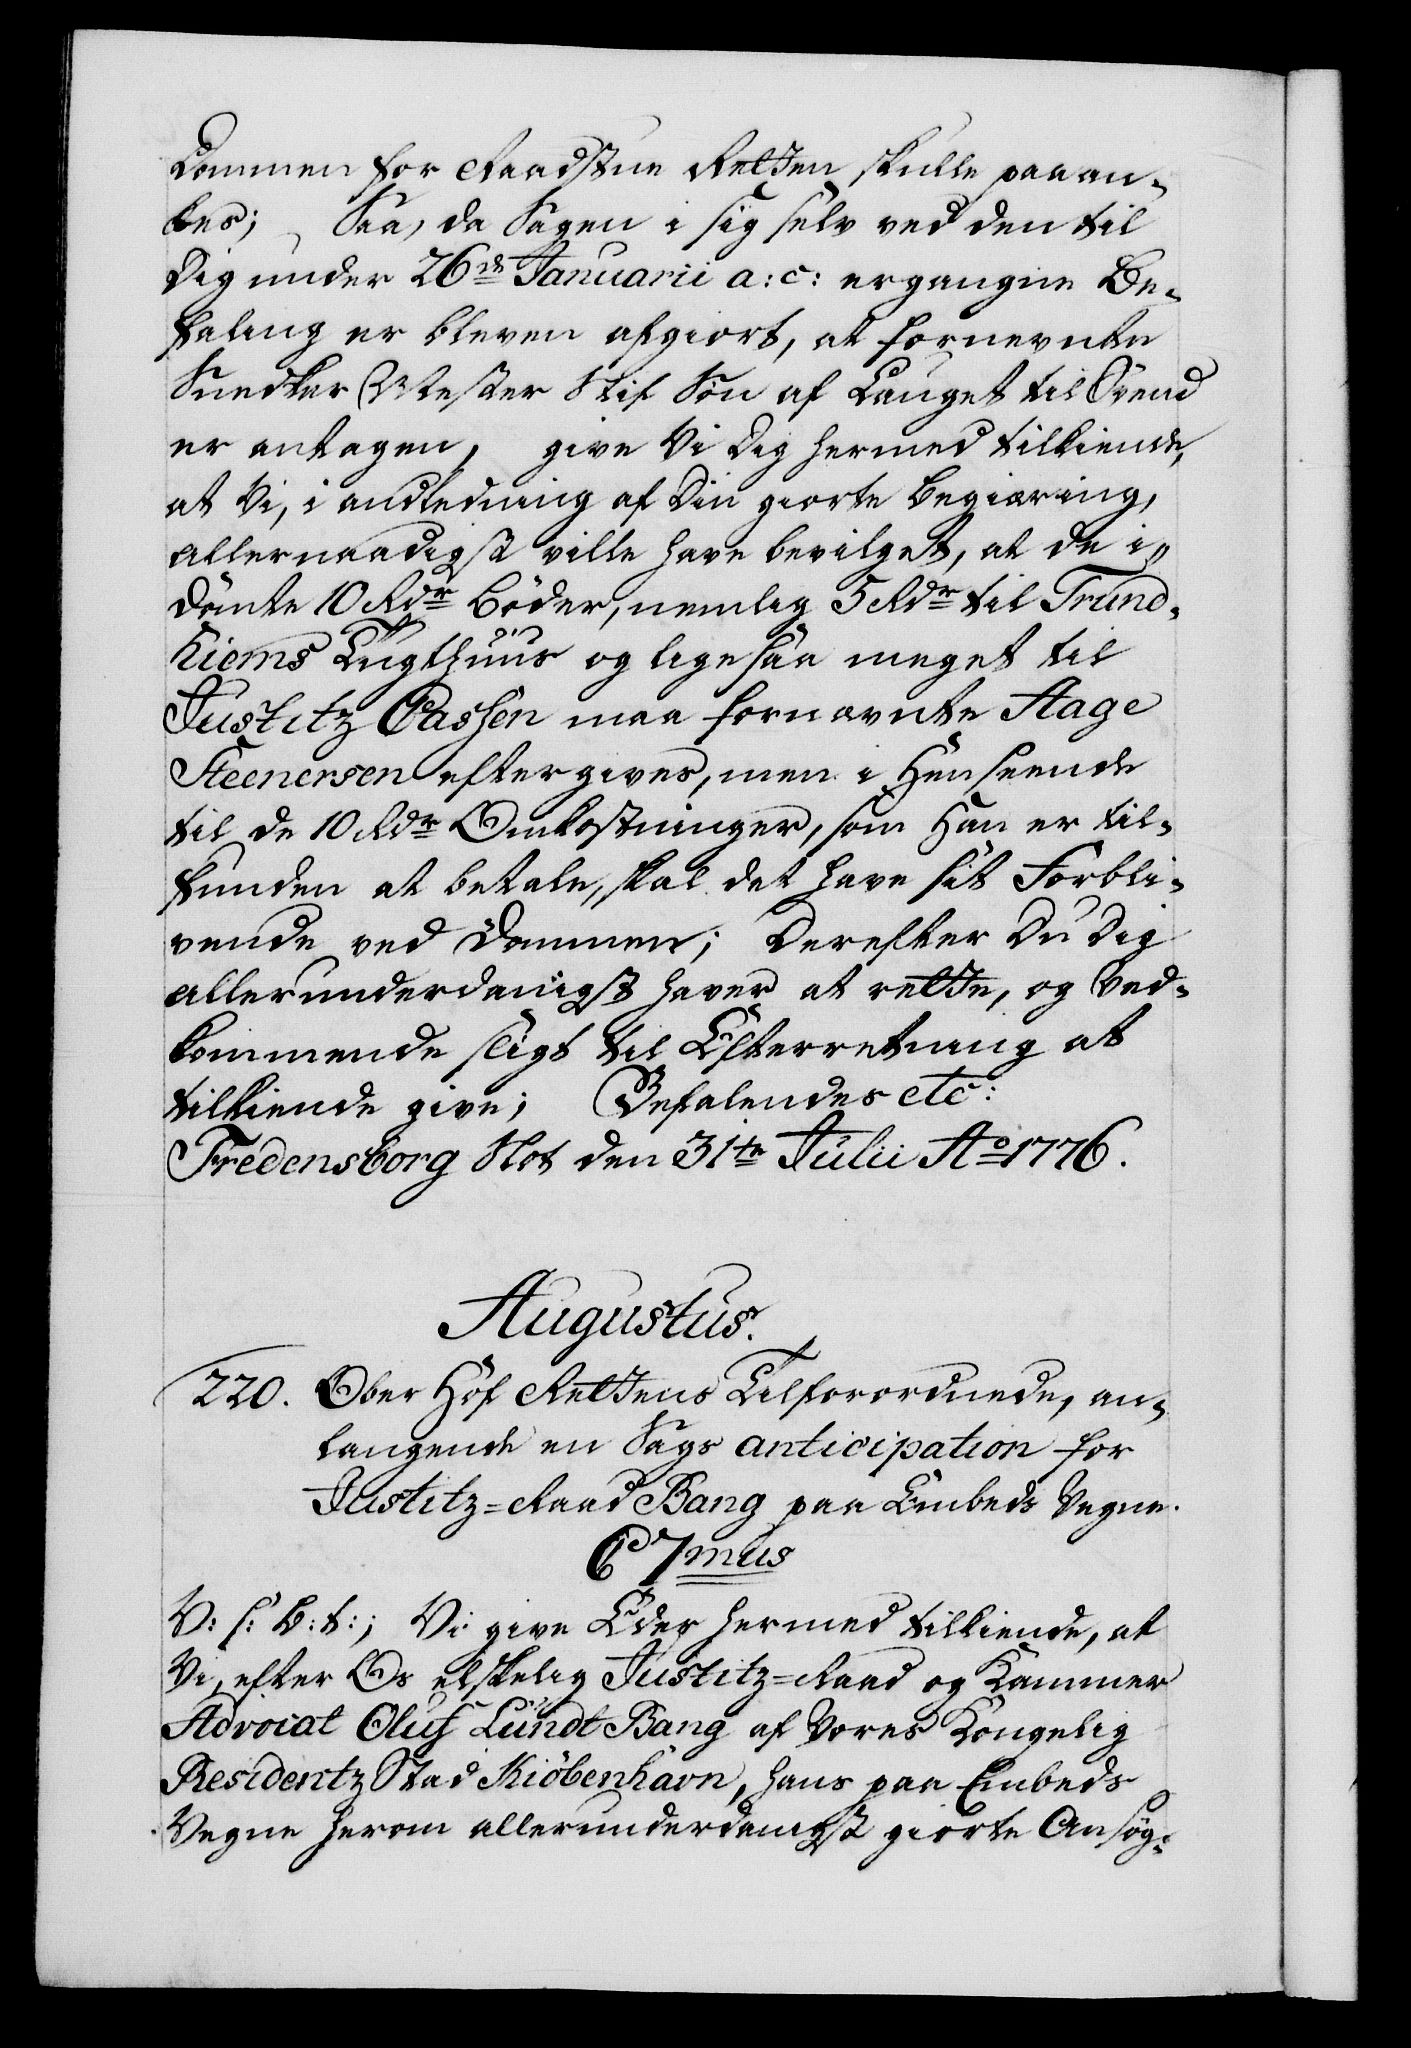 Dommen for Raadstue Retten skulle paaan-
kes; Saa, da Sagen i sig selv ved den til
Dig under 26de Januarii a: c: ergangne Be-
faling er bleven afgiort, at fornevnte
Snedker Mester Stif Søn af Lauget til Svend
er antagen, give Vi Dig hermed tilkiende,
at Vi, i andledning af Din giorte Begiæring,
allernaadigst ville have bevilget, at de i-
dömte 10 Rdr Böder, nemlig 5 Rdr til Trund-
hiems Tugthuus og ligesaa meget til
Justitz Cassen maa fornævnte Aage
Steenersen eftergives, men i Henseende
til de 10 Rdr Omkostninger, som Han er til-
funden at betale, skal det have sit Forbli-
vende ved Dommen; Derefter Du Dig
allerunderdanigst haver at rette, og Ved-
kommende sligt til Efterretning at
tilkiende give; Befalendes etc:
Fredensborg Slot den 31te Julii Ao 1776.
Augustus.
220. Ober Hof Rettens Tilforordnede, an-
langende en Sags anticipation for
Justitz-Raad Bang paa Embeds Vegne.
C 7mus
V: s: b: t:; Vi give Eder hermed tilkiende, at
Vi, efter Os elskelig Justitz-Raad og Kammer
Advocat Oluf Lundt Bang af Vores Kongelig
Residentz Stad Kiöbenhavn, hans paa Embeds
Vegne herom allerunderdanigst giorte Ansög-